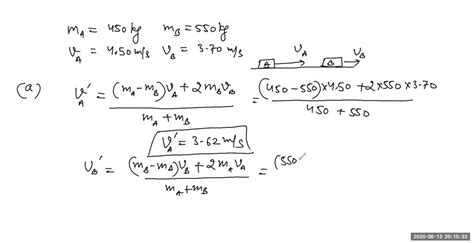 m_A = 450 kg   m_B = 550 kg
v_A = 4.50 m/s   v_B = 3.70 m/s
A   v_A   B   v_B
(a)   v_A' = ((m_A - m_B) v_A + 2 m_B v_B) / (m_A + m_B) = ((450 - 550) × 4.50 + 2 × 550 × 3.70) / (450 + 550)
v_A' = 3.62 m/s
v_B' = ((m_B - m_A) v_B + 2 m_A v_A) / (m_A + m_B) = (550 -
2020-08-13 20:15:33